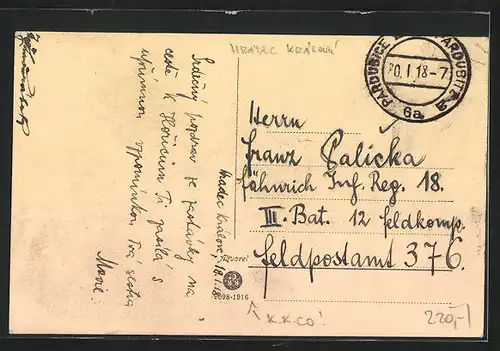 HRADEC KRÁLOVÉ
PARDUBICE PARDUBITZ 2
20. I. 18 - 7
6a
Srdečný pozdrav ze zastávky na
cestě k Hořicům Ti posílá s
upřímnou vzpomínkou Tvá sestra
Hradec Králové 18./I. 18.
Herrn
Franz Palička
Fähnrich Inf. Reg. 18.
III. Bat. 12 Feldkomp.
Feldpostamt 376.
Aquarel
98-1916
K.K.CO!
220,-